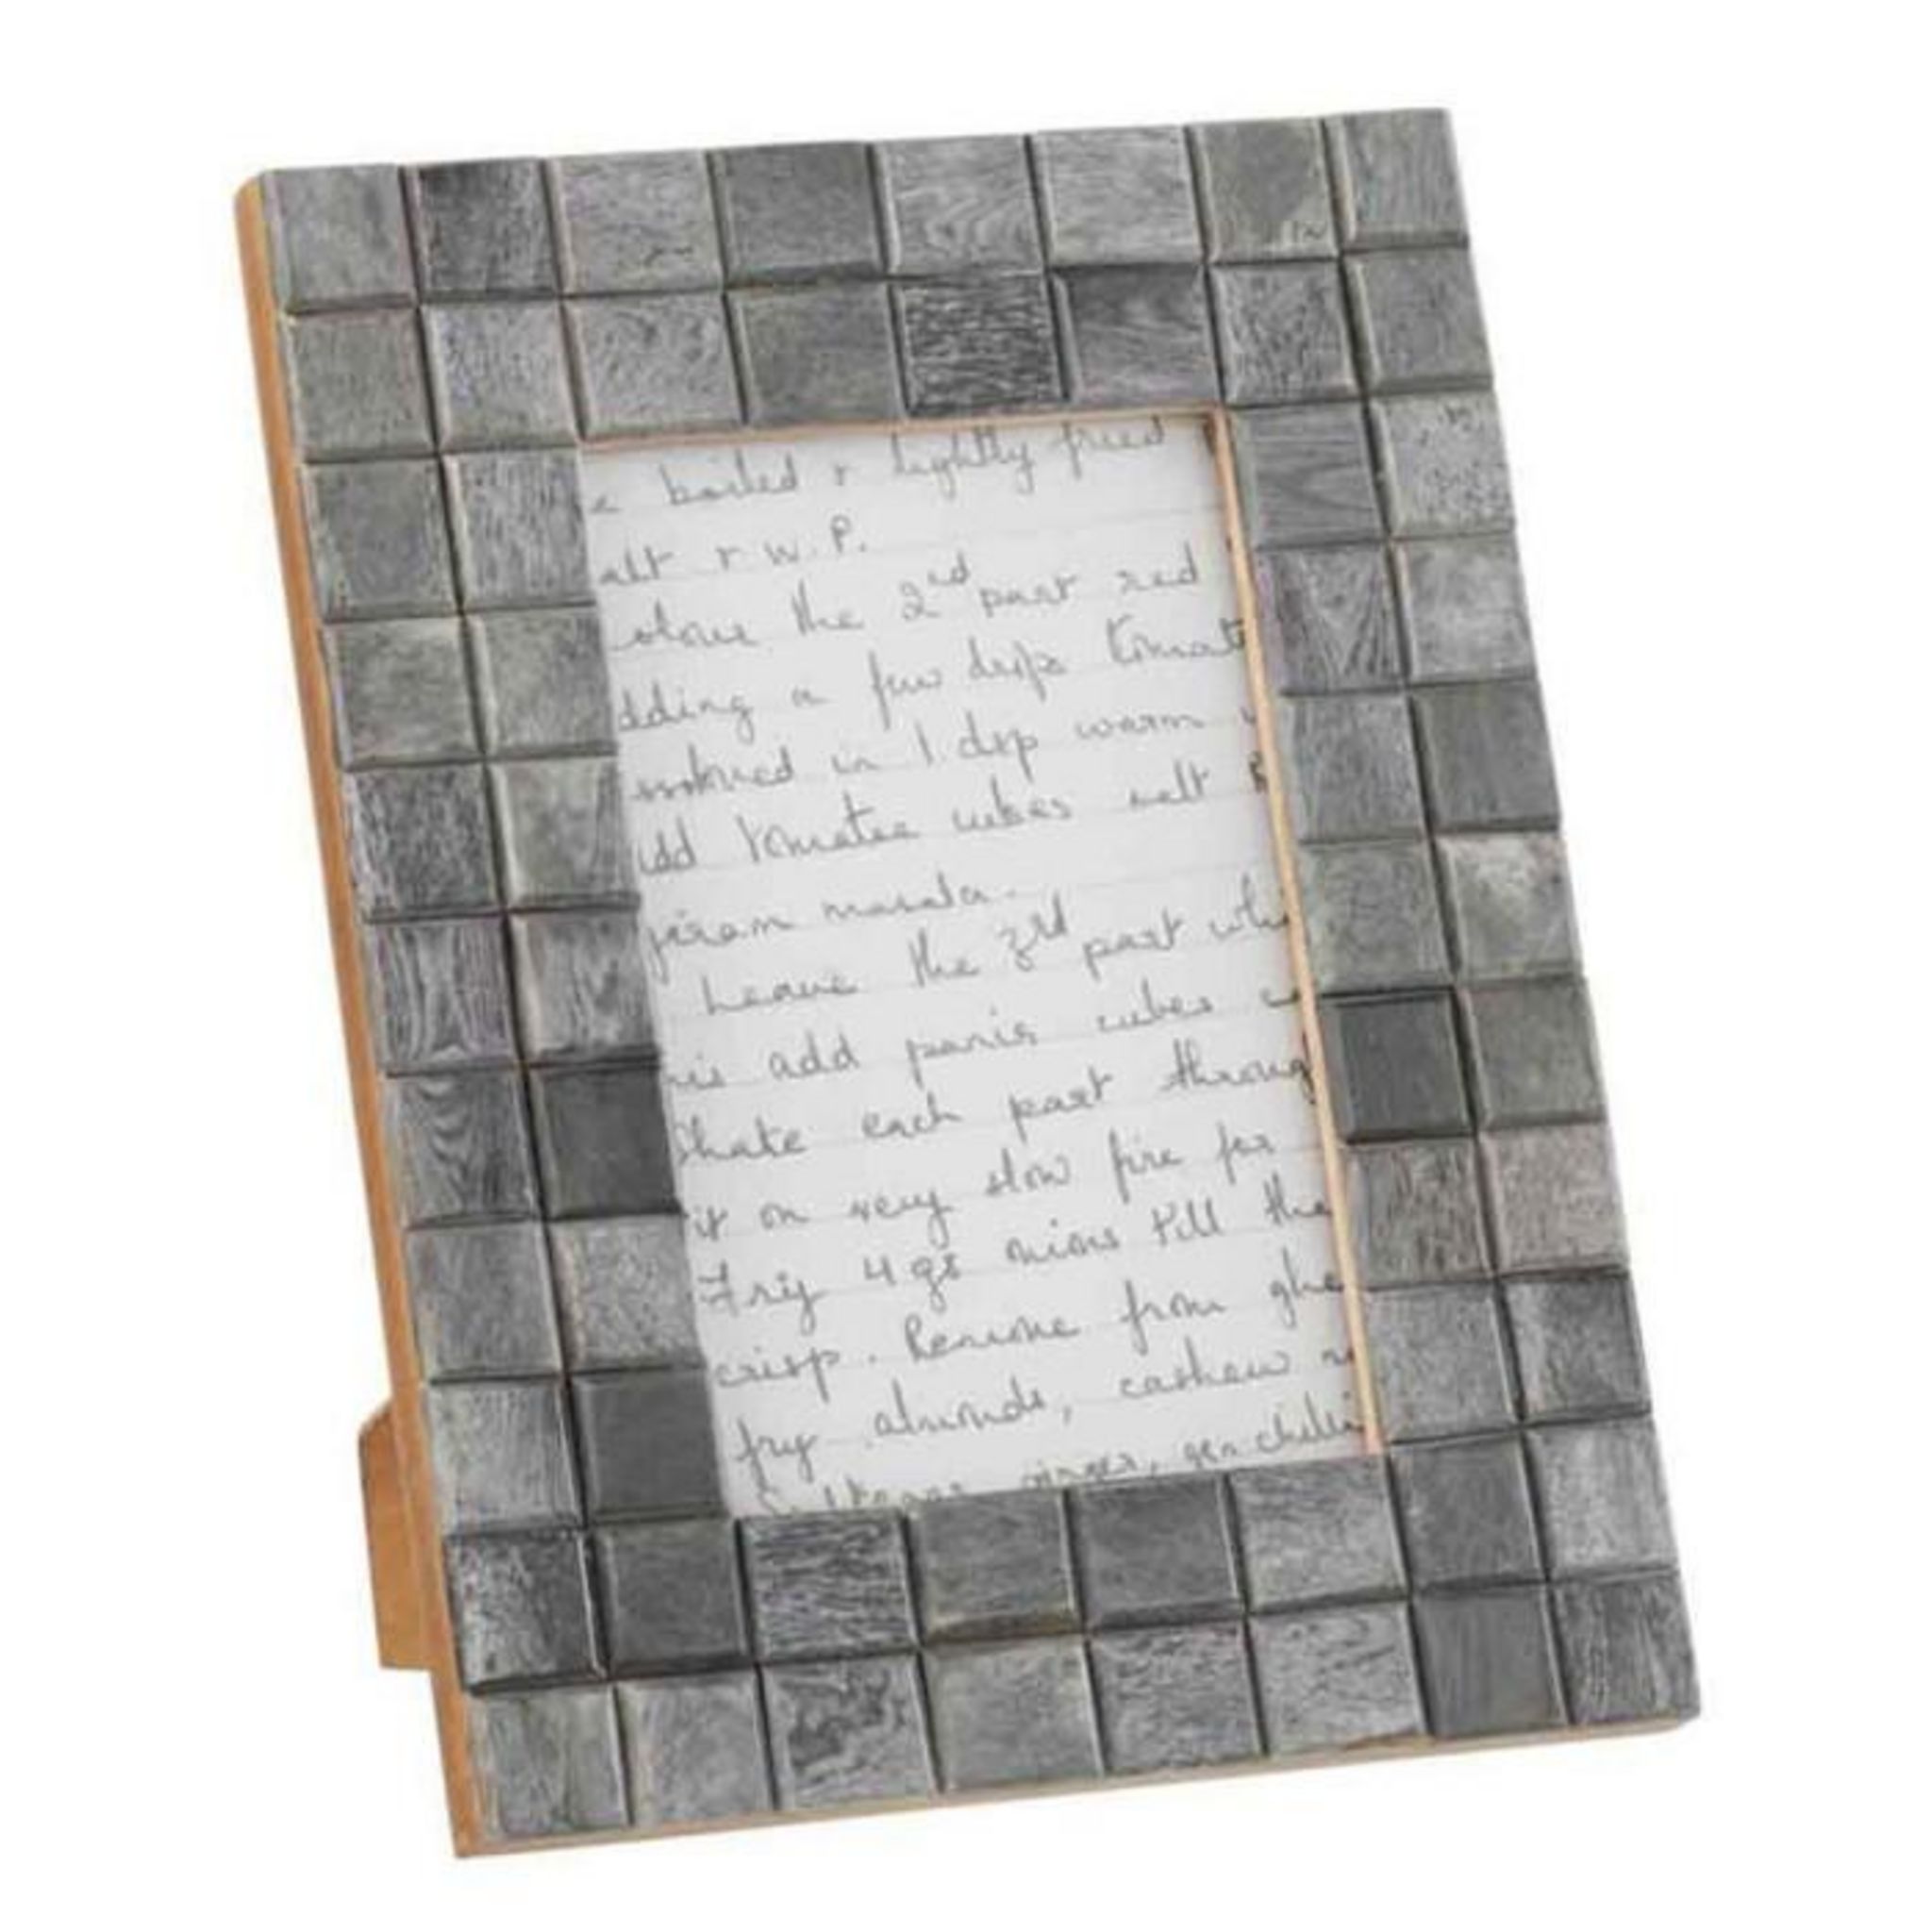 e boiled & lightly fried
alt & W.P.
olour the 2nd part red
dding a few drops tomato
ssolved in 1 drop warm
dd tomatoe cubes salt &
garam masala.
Leave the 3rd part whi
his add panir cubes
Shake each part throug
it on very slow fire for
Fry 4 gs mins till the
crisp. Remove from ghe
fry almonds, cashew n
Sultanas ginger, grn chilli